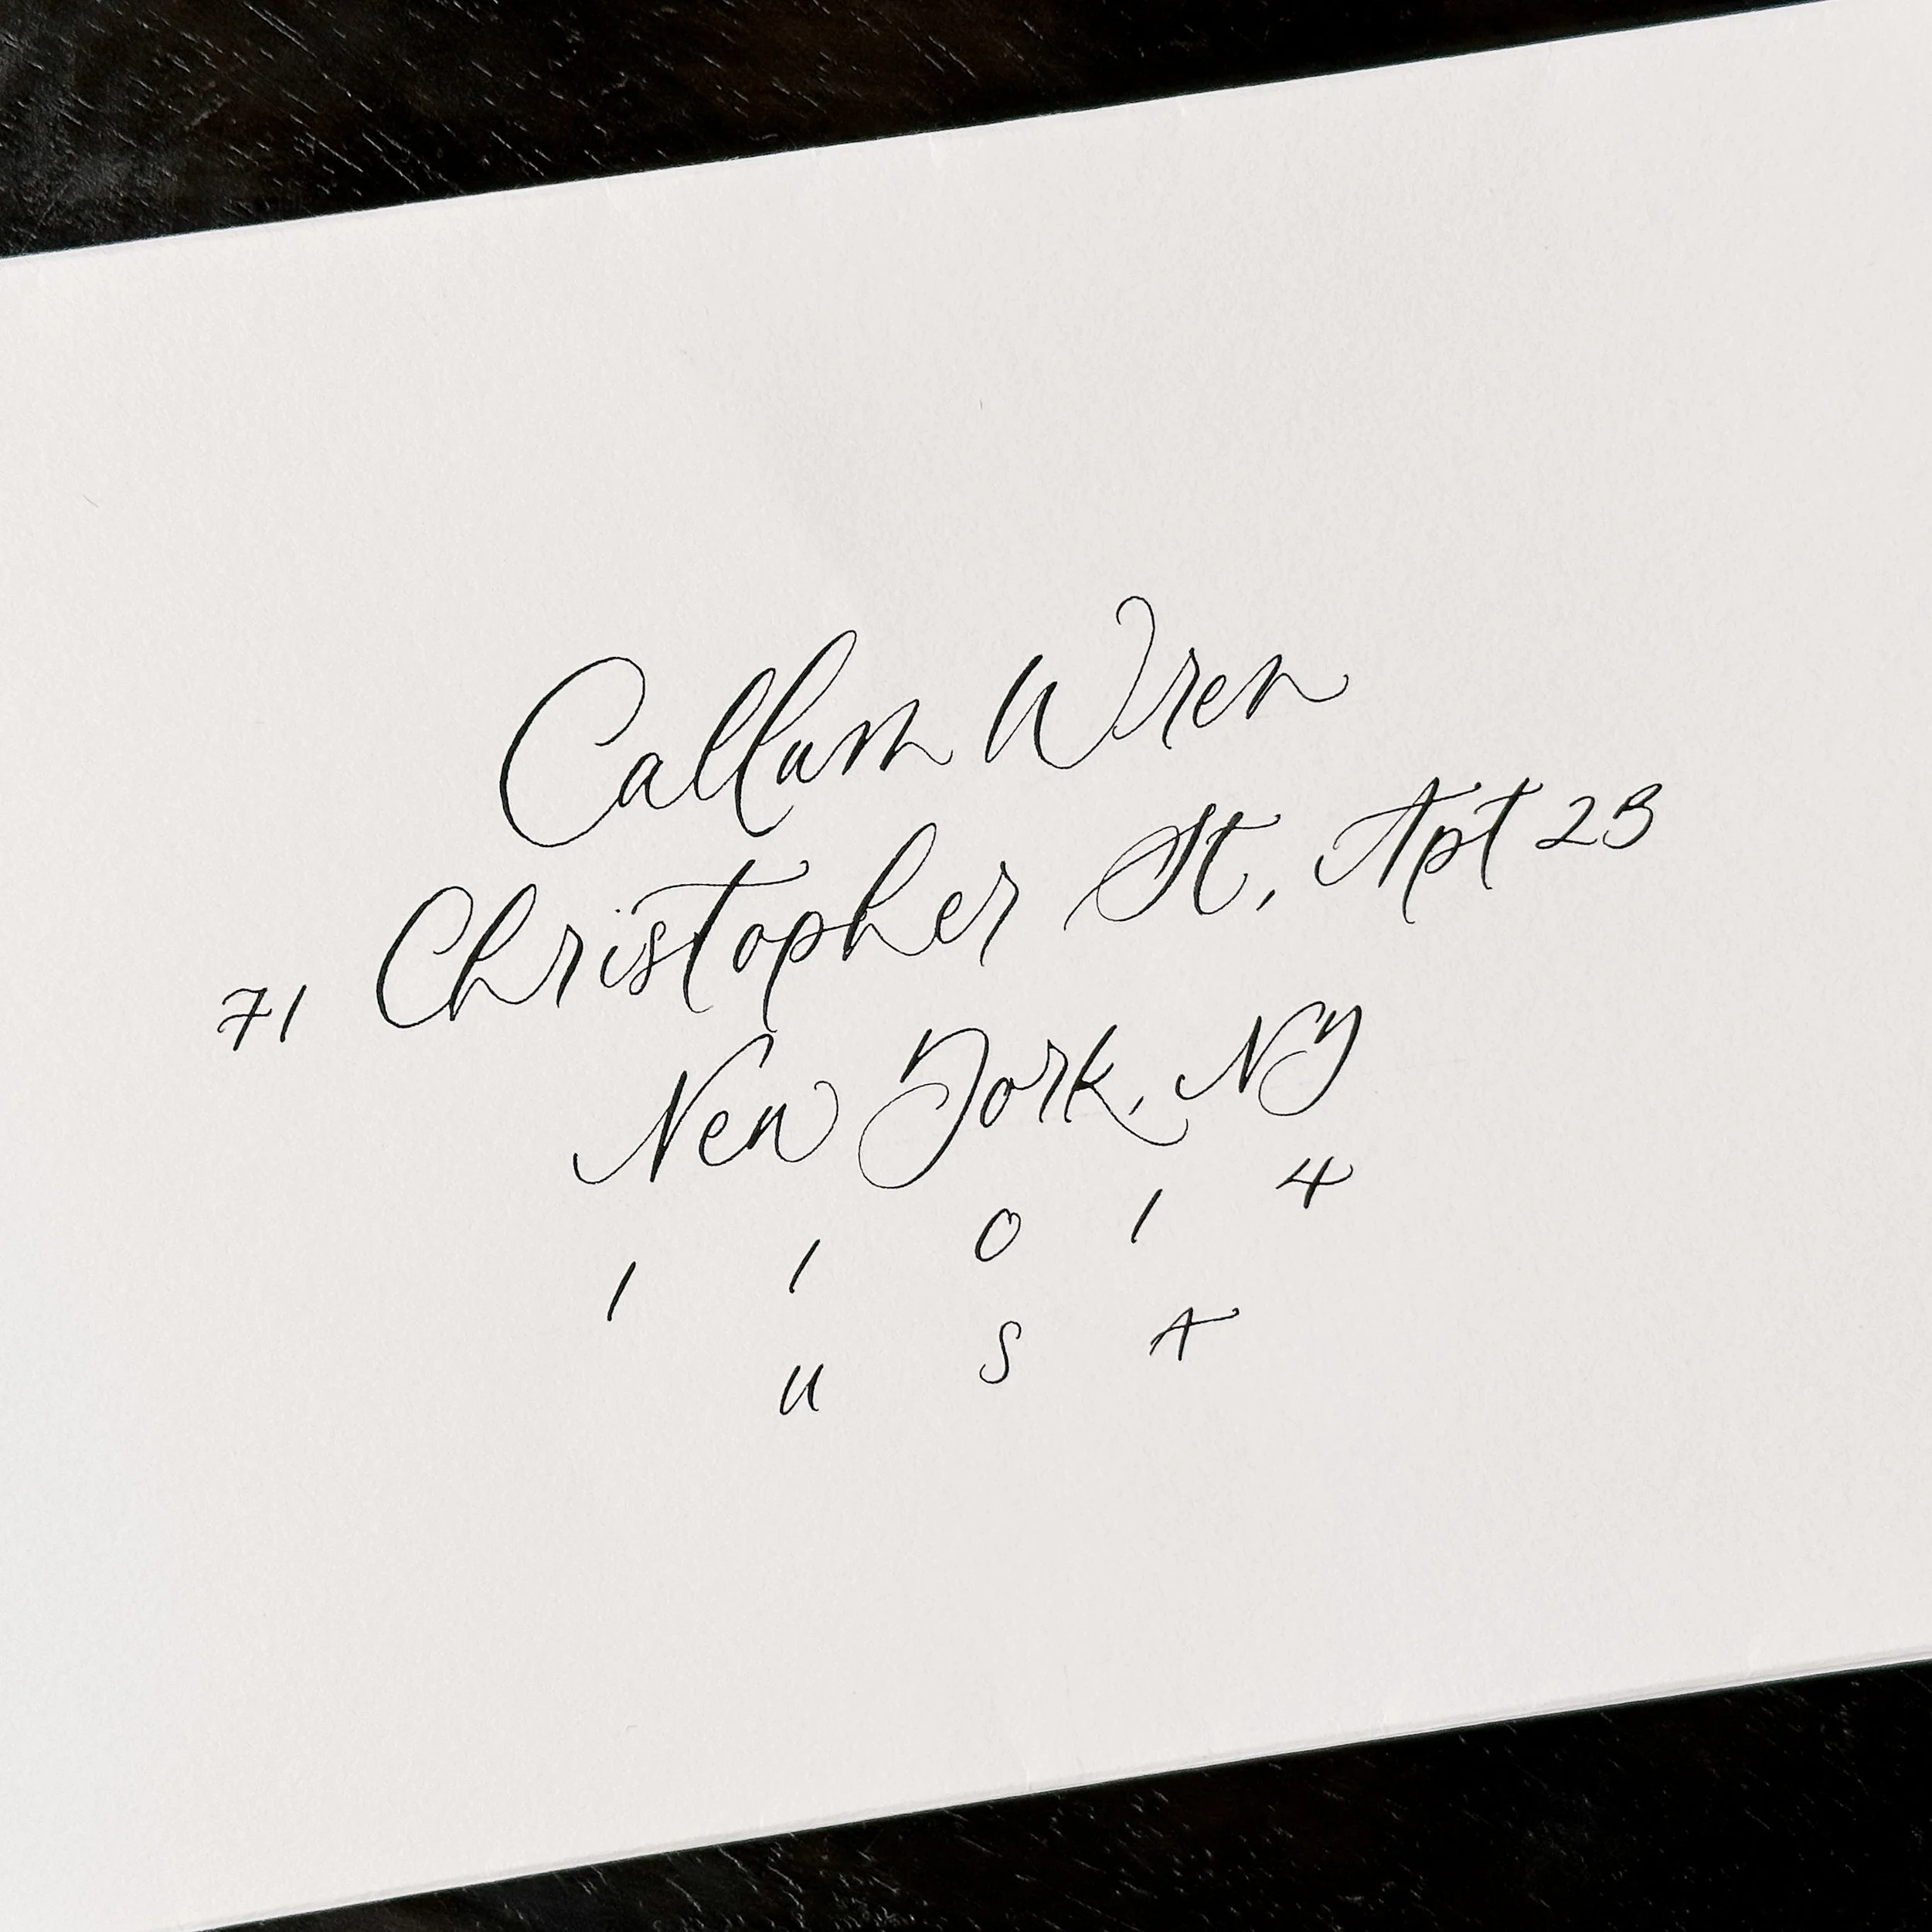 Callum Wren
71 Christopher St, Apt 2B
New York, NY
1 1 0 1 4
U S A